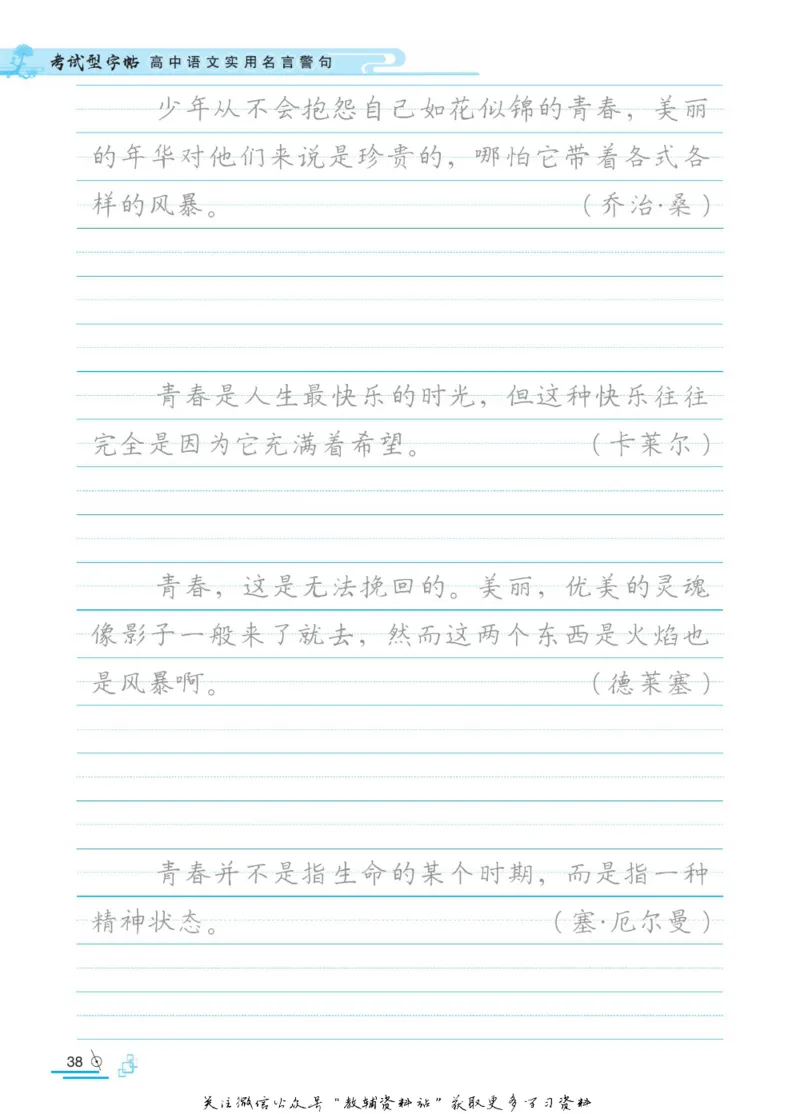 考试型字帖 高中语文实用名言警句
少年从不会抱怨自己如花似锦的青春，美丽
的年华对他们来说是珍贵的，哪怕它带着各式各
样的风暴。（乔治·桑）
青春是人生最快乐的时光，但这种快乐往往
完全是因为它充满着希望。（卡莱尔）
青春，这是无法挽回的。美丽，优美的灵魂
像影子一般来了就去，然而这两个东西是火焰也
是风暴啊。（德莱塞）
青春并不是指生命的某个时期，而是指一种
精神状态。（塞·厄尔曼）
38
关注微信公众号“教辅资料站”获取更多学习资料